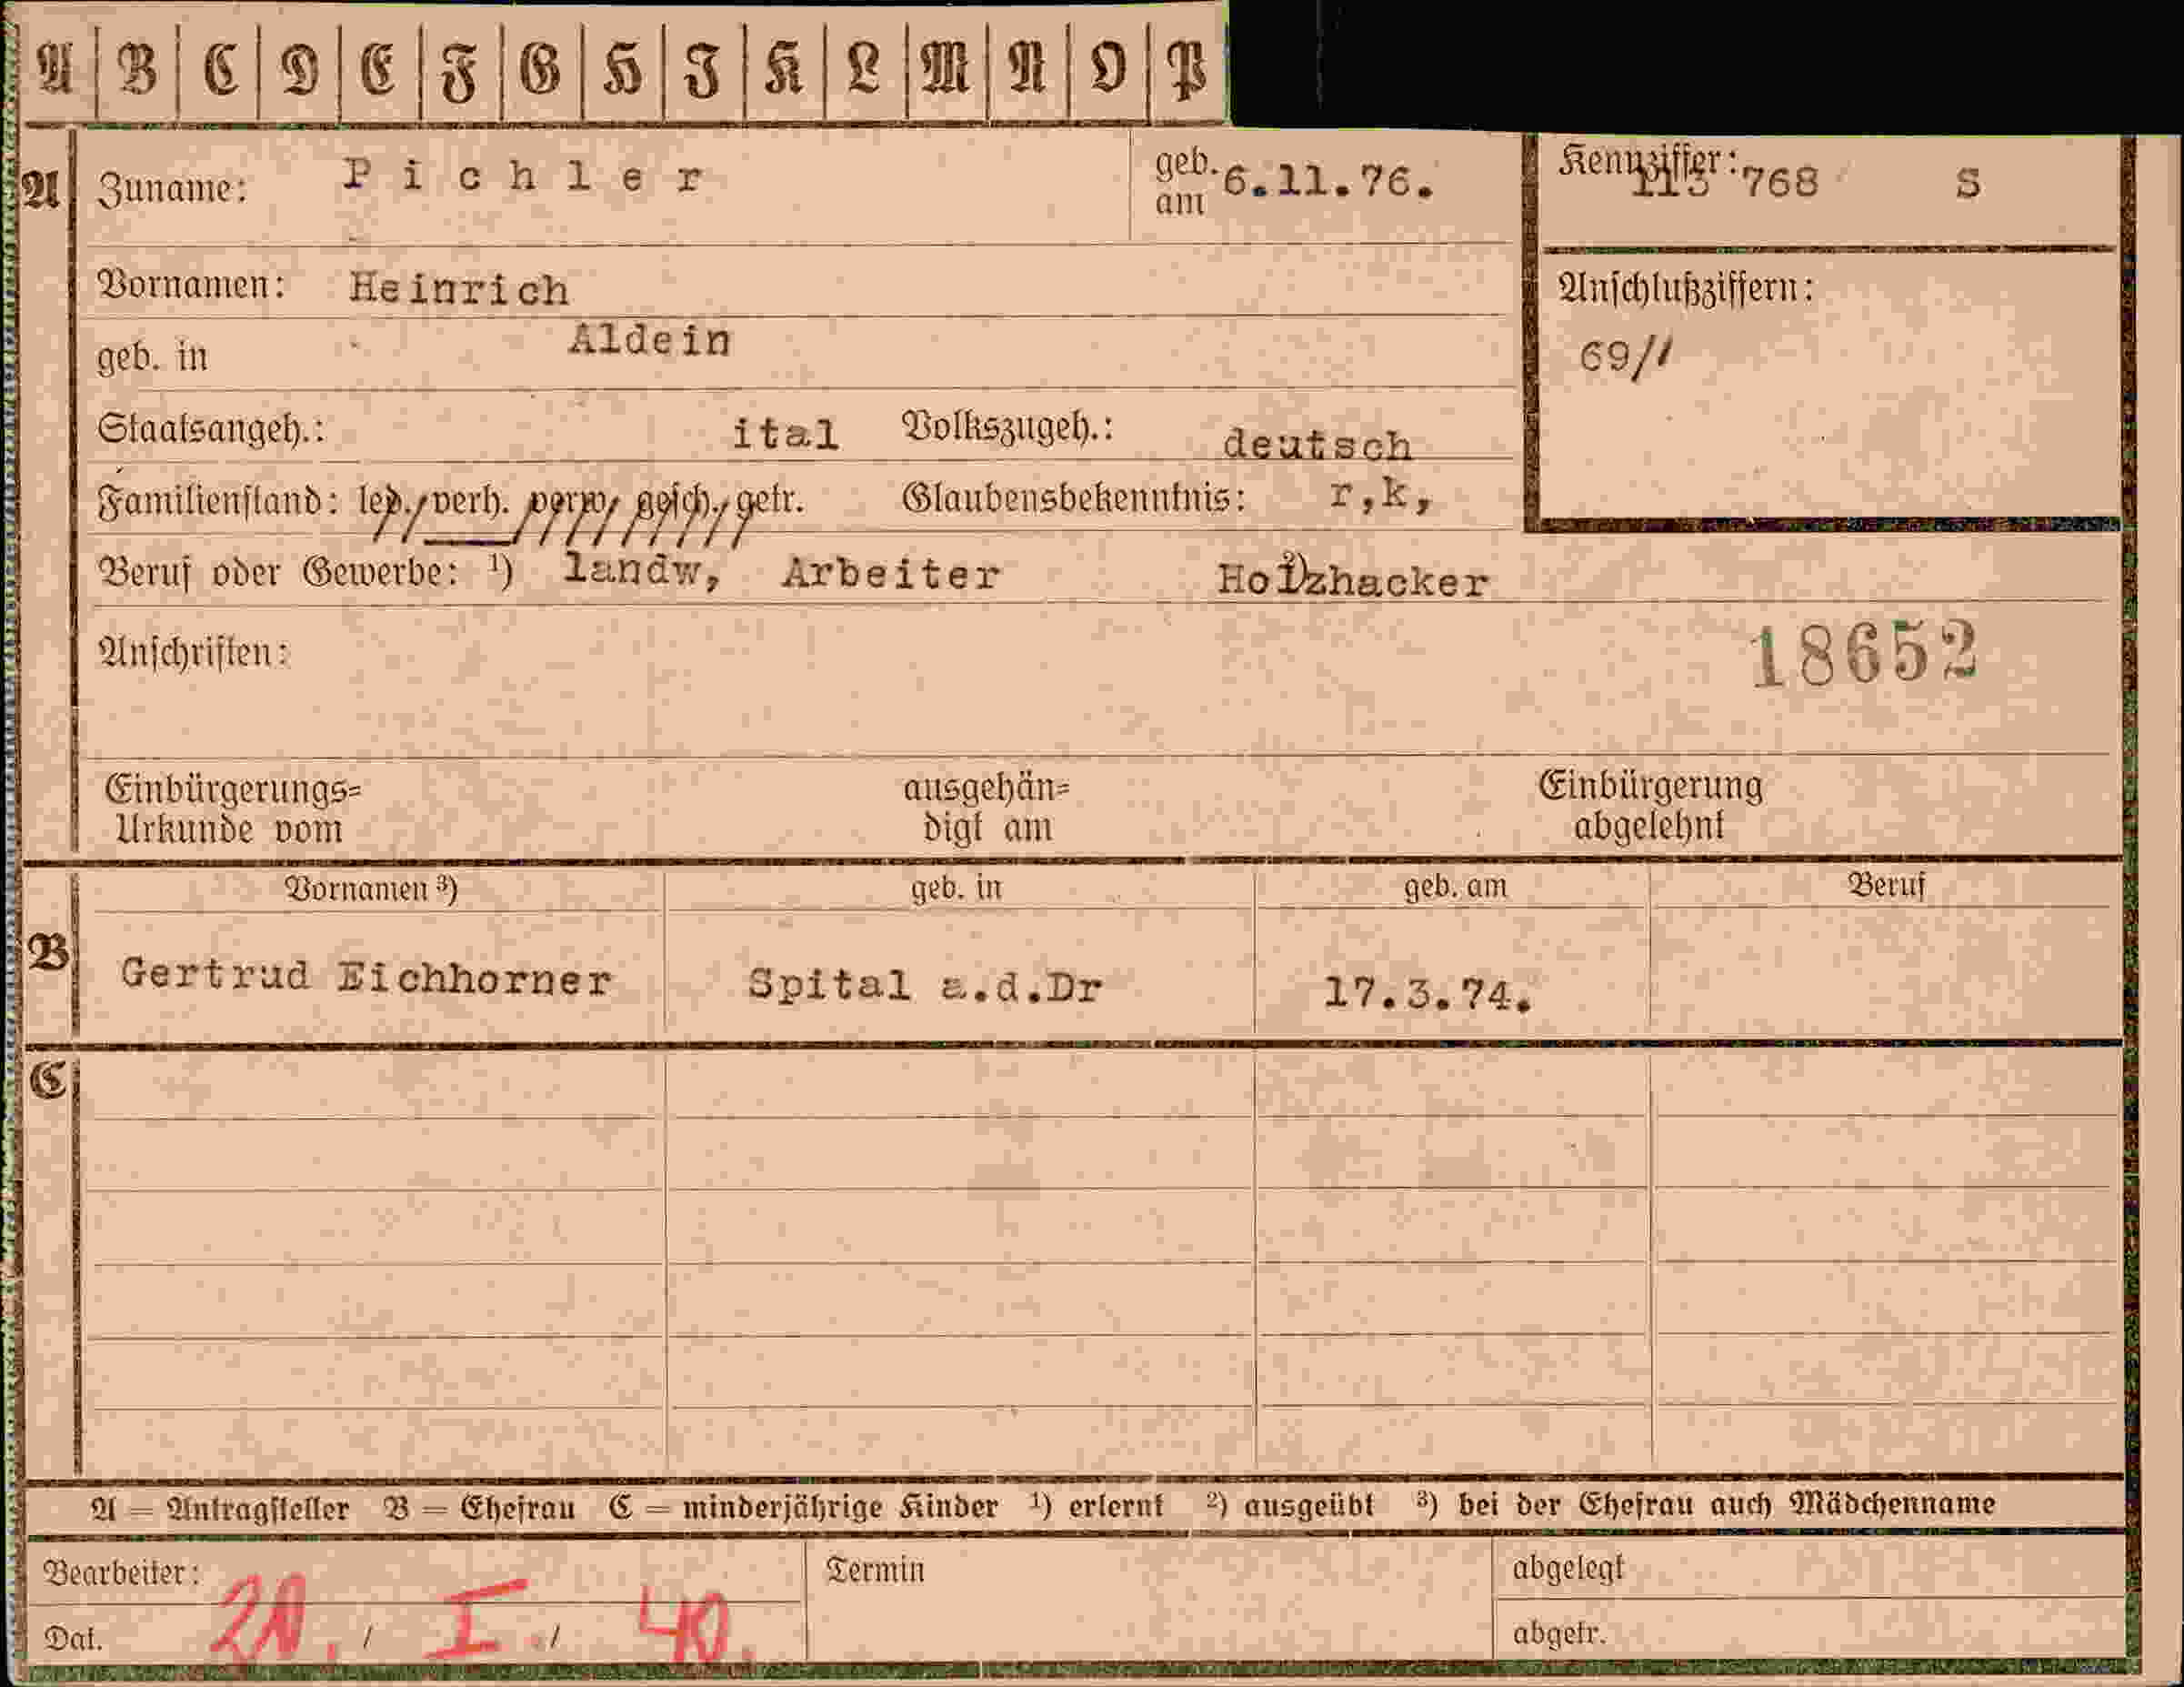 A B C D E F G H J K L M N O P
A Zuname: Pichler geb. am 6.11.76. Kennziffer: 113 768 S
Vornamen: Heinrich Anschlußziffern:
geb. in Aldein 69/1
Staatsangeh.: ital Volkszugeh.: deutsch
Familienstand: led. verh. verw. gesch. getr. Glaubensbekenntnis: r,k,
Beruf oder Gewerbe: ¹) landw, Arbeiter ²) Holzhacker
Anschriften: 18652
Einbürgerungs= ausgehän= Einbürgerung
Urkunde vom digt am abgelehnt
Vornamen ³) geb. in geb. am Beruf
B Gertrud Eichhorner Spital a.d.Dr 17.3.74.
C
A = Antragsteller B = Ehefrau C = minderjährige Kinder ¹) erlernt ²) ausgeübt ³) bei der Ehefrau auch Mädchenname
Bearbeiter: Termin abgelegt
Dat. / I. / 40. abgetr.